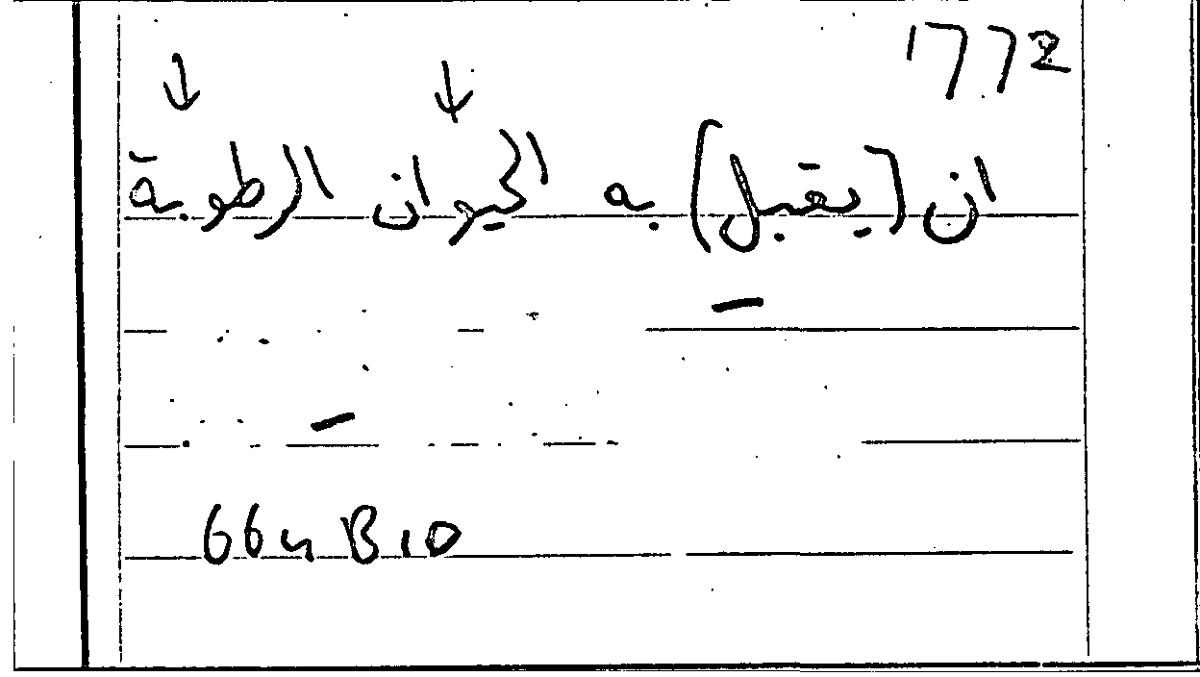 1772
ان (يقبل) به الحيوان الرطوبة
664 B 10